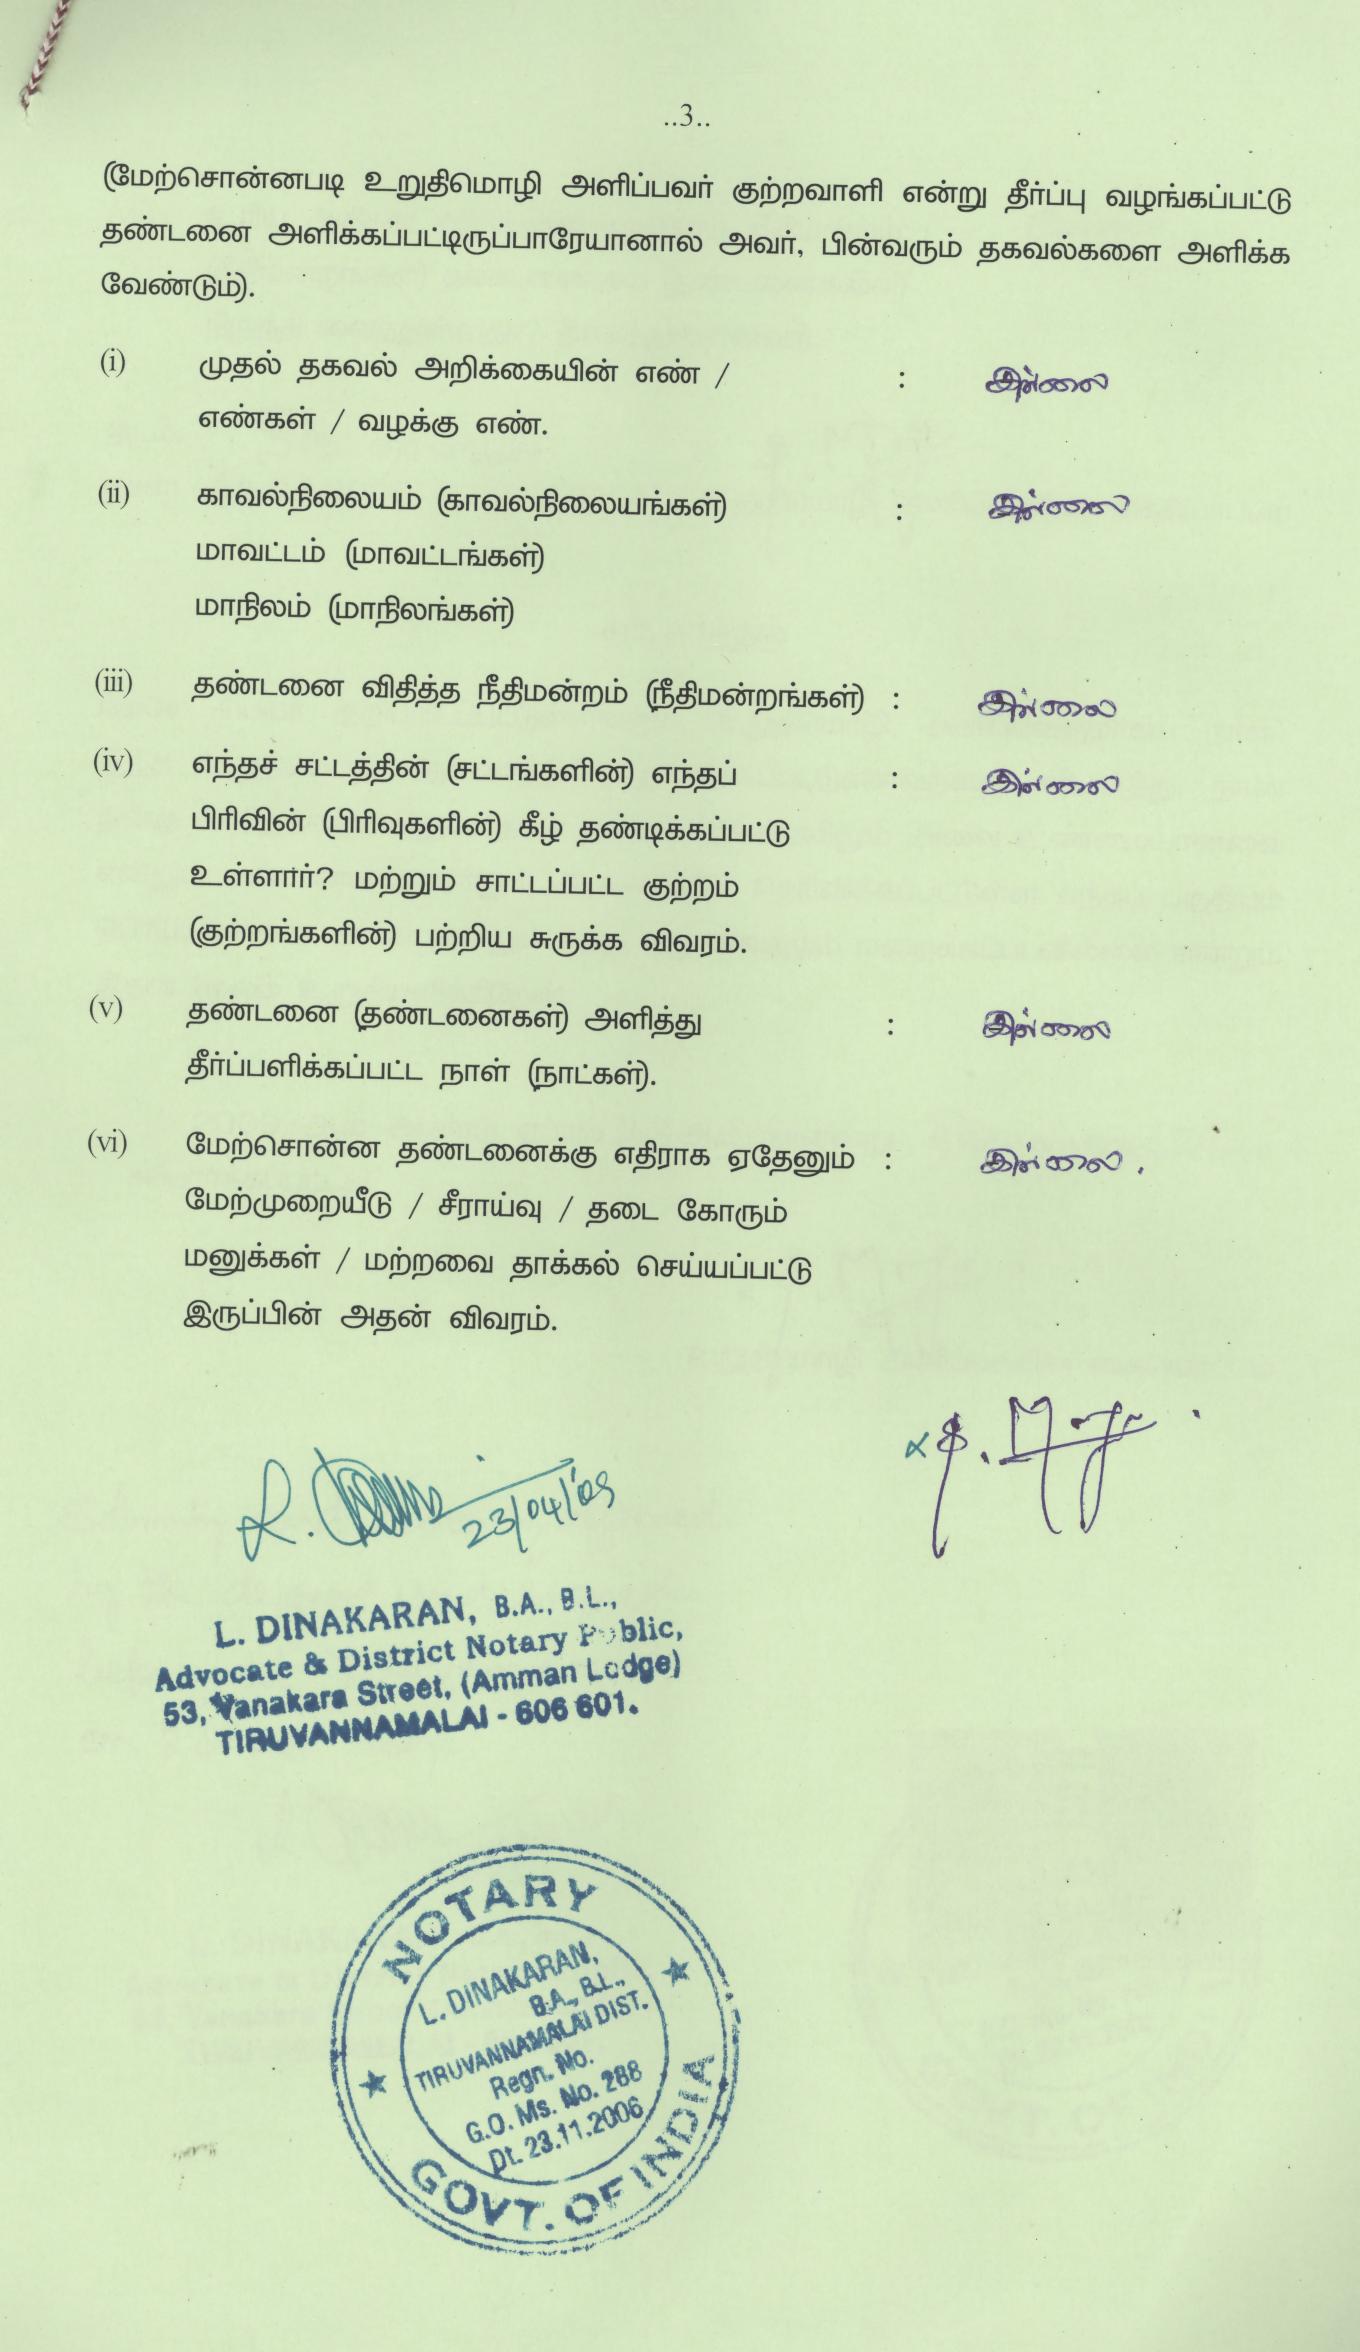 ..3..
(மேற்சொன்னபடி உறுதிமொழி அளிப்பவர் குற்றவாளி என்று தீர்ப்பு வழங்கப்பட்டு
தண்டனை அளிக்கப்பட்டிருப்பாரேயானால் அவர், பின்வரும் தகவல்களை அளிக்க
வேண்டும்).
(i) முதல் தகவல் அறிக்கையின் எண் / : இல்லை
எண்கள் / வழக்கு எண்.
(ii) காவல்நிலையம் (காவல்நிலையங்கள்) : இல்லை
மாவட்டம் (மாவட்டங்கள்)
மாநிலம் (மாநிலங்கள்)
(iii) தண்டனை விதித்த நீதிமன்றம் (நீதிமன்றங்கள்) : இல்லை
(iv) எந்தச் சட்டத்தின் (சட்டங்களின்) எந்தப் : இல்லை
பிரிவின் (பிரிவுகளின்) கீழ் தண்டிக்கப்பட்டு
உள்ளார்? மற்றும் சாட்டப்பட்ட குற்றம்
(குற்றங்களின்) பற்றிய சுருக்க விவரம்.
(v) தண்டனை (தண்டனைகள்) அளித்து : இல்லை
தீர்ப்பளிக்கப்பட்ட நாள் (நாட்கள்).
(vi) மேற்சொன்ன தண்டனைக்கு எதிராக ஏதேனும் : இல்லை.
மேற்முறையீடு / சீராய்வு / தடை கோரும்
மனுக்கள் / மற்றவை தாக்கல் செய்யப்பட்டு
இருப்பின் அதன் விவரம்.
23/04/09
L. DINAKARAN, B.A., B.L.,
Advocate & District Notary Public,
53, Vanakara Street, (Amman Lodge)
TIRUVANNAMALAI - 606 601.
NOTARY
L. DINAKARAN,
B.A., B.L.,
TIRUVANNAMALAI DIST.
Regn. No.
G.O. Ms. No. 288
Dt. 23.11.2006
GOVT. OF INDIA